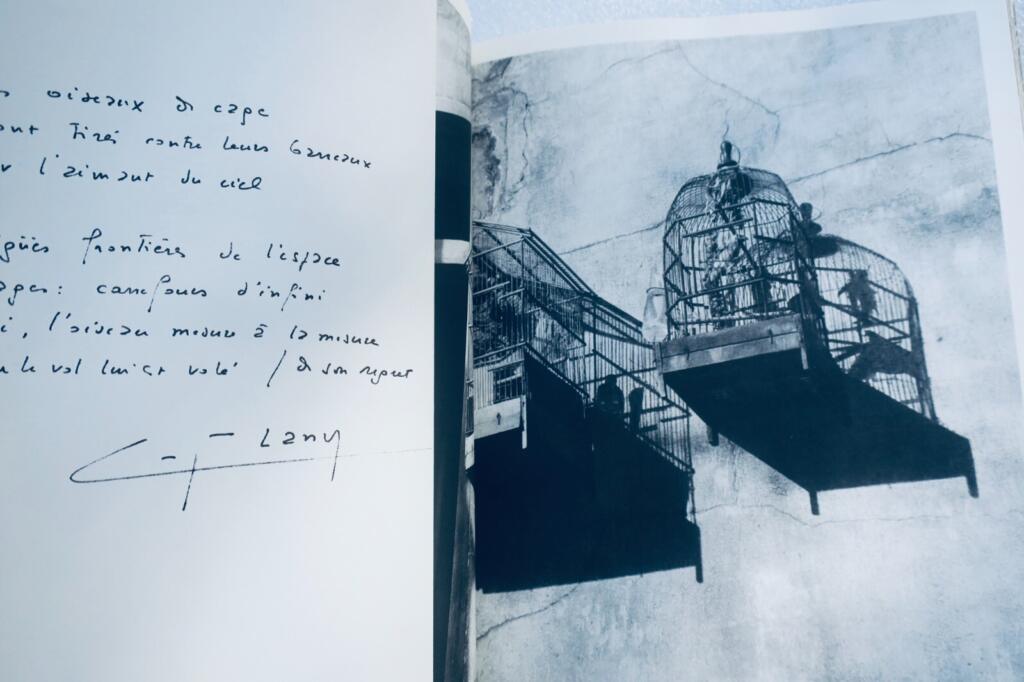 oiseaux de cage
ont tirés contre leurs barreaux
r l'aimant du ciel
guës frontières de l'espace
ages: carrefours d'infini
i, l'oiseau mesure à la mesure
le vol lui est volé / de son regard
Lany